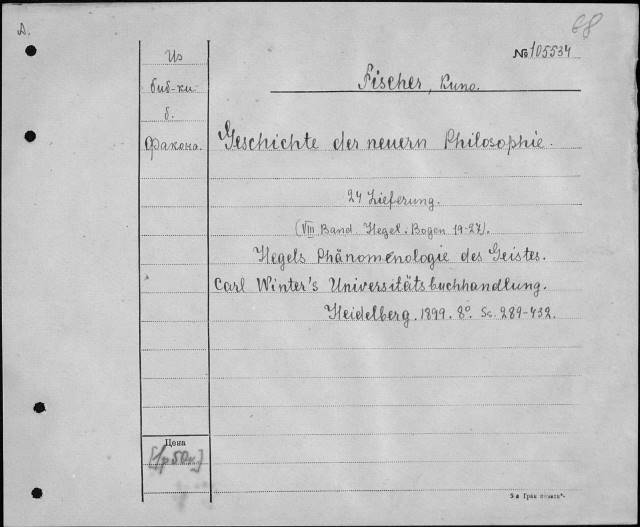 D.
68
№ 105534
Из
биб-ки
б.
Факона.
Fischer, Kuno.
Geschichte der neuern Philosophie.
24 Lieferung.
(VIII Band. Hegel. Bogen 19-27).
Hegels Phänomenologie des Geistes.
Carl Winter's Universitätsbuchhandlung.
Heidelberg. 1899. 8º. Sc. 289-432.
Цена
[1р50к]
5-я Гран